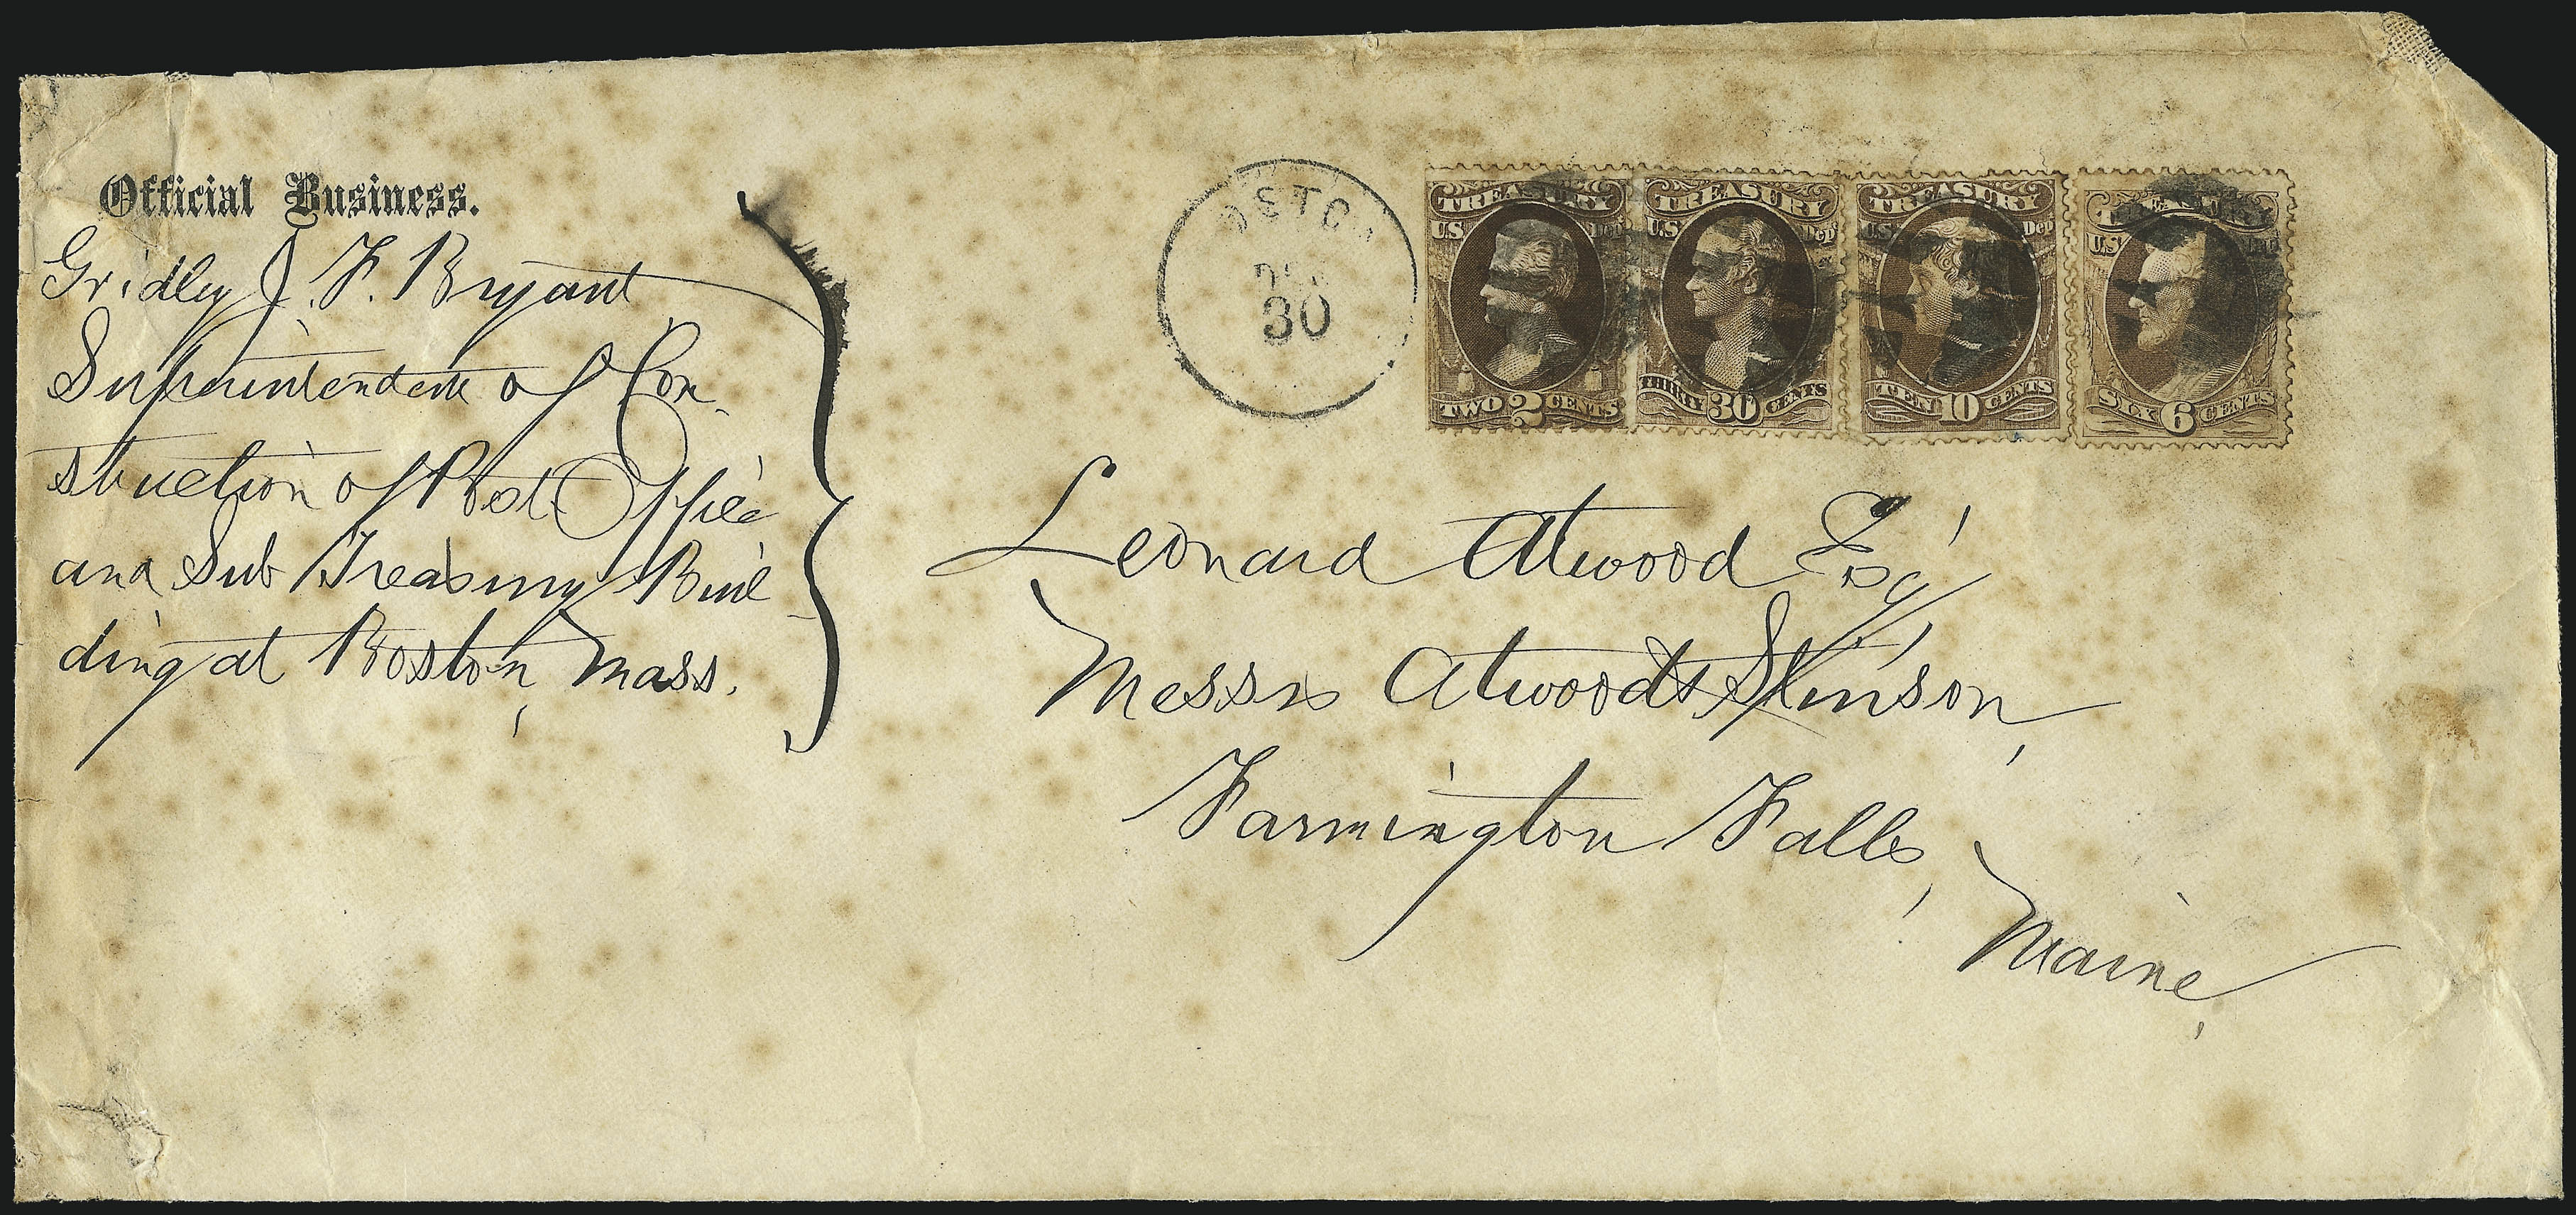 Official Business.
Gridley J. F. Bryant
Superintendent of Con-
struction of Post Office
and Sub Treasury Buil-
ding at Boston, Mass.
30
TREASURY
U.S. Dept
TWO 2 CENTS
TREASURY
U.S. Dept
THIRTY 30 CENTS
TREASURY
U.S. Dept
TEN 10 CENTS
TREASURY
U.S. Dept
SIX 6 CENTS
Leonard Atwood Esq
Messrs Atwoods Stinson,
Farmington Falls,
Maine,